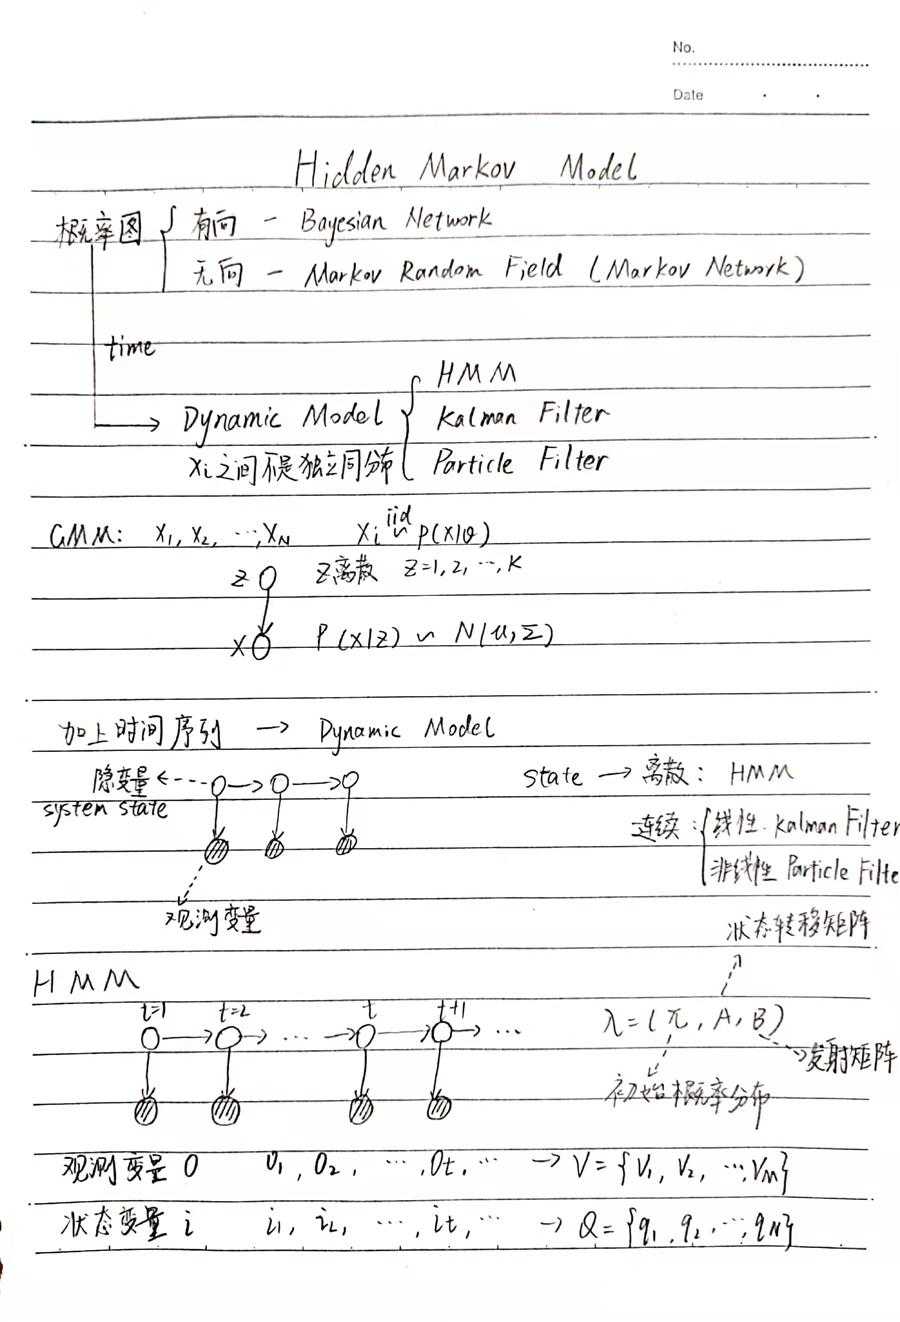 No.
Date
Hidden Markov Model
概率图 { 有向 - Bayesian Network
无向 - Markov Random Field (Markov Network)
time
HMM
→ Dynamic Model { Kalman Filter
xi之间不是独立同分布 Particle Filter
GMM: x1, x2, ⋯, xN xi iid ~ P(x|θ)
z z离散 z=1,2,⋯,K
x P(x|z) ~ N(μ,Σ)
加上时间序列 → Dynamic Model
隐变量 state → 离散: HMM
system state
连续: { 线性. Kalman Filter
非线性 Particle Filte
观测变量
状态转移矩阵
HMM
t=1 t=2 t t+1
⋯ ⋯ λ=(π, A, B)
发射矩阵
初始概率分布
观测变量 O O1, O2, ⋯, Ot, ⋯ → V={V1, V2, ⋯, VM}
状态变量 i i1, i2, ⋯, it, ⋯ → Q={q1, q2, ⋯, qN}